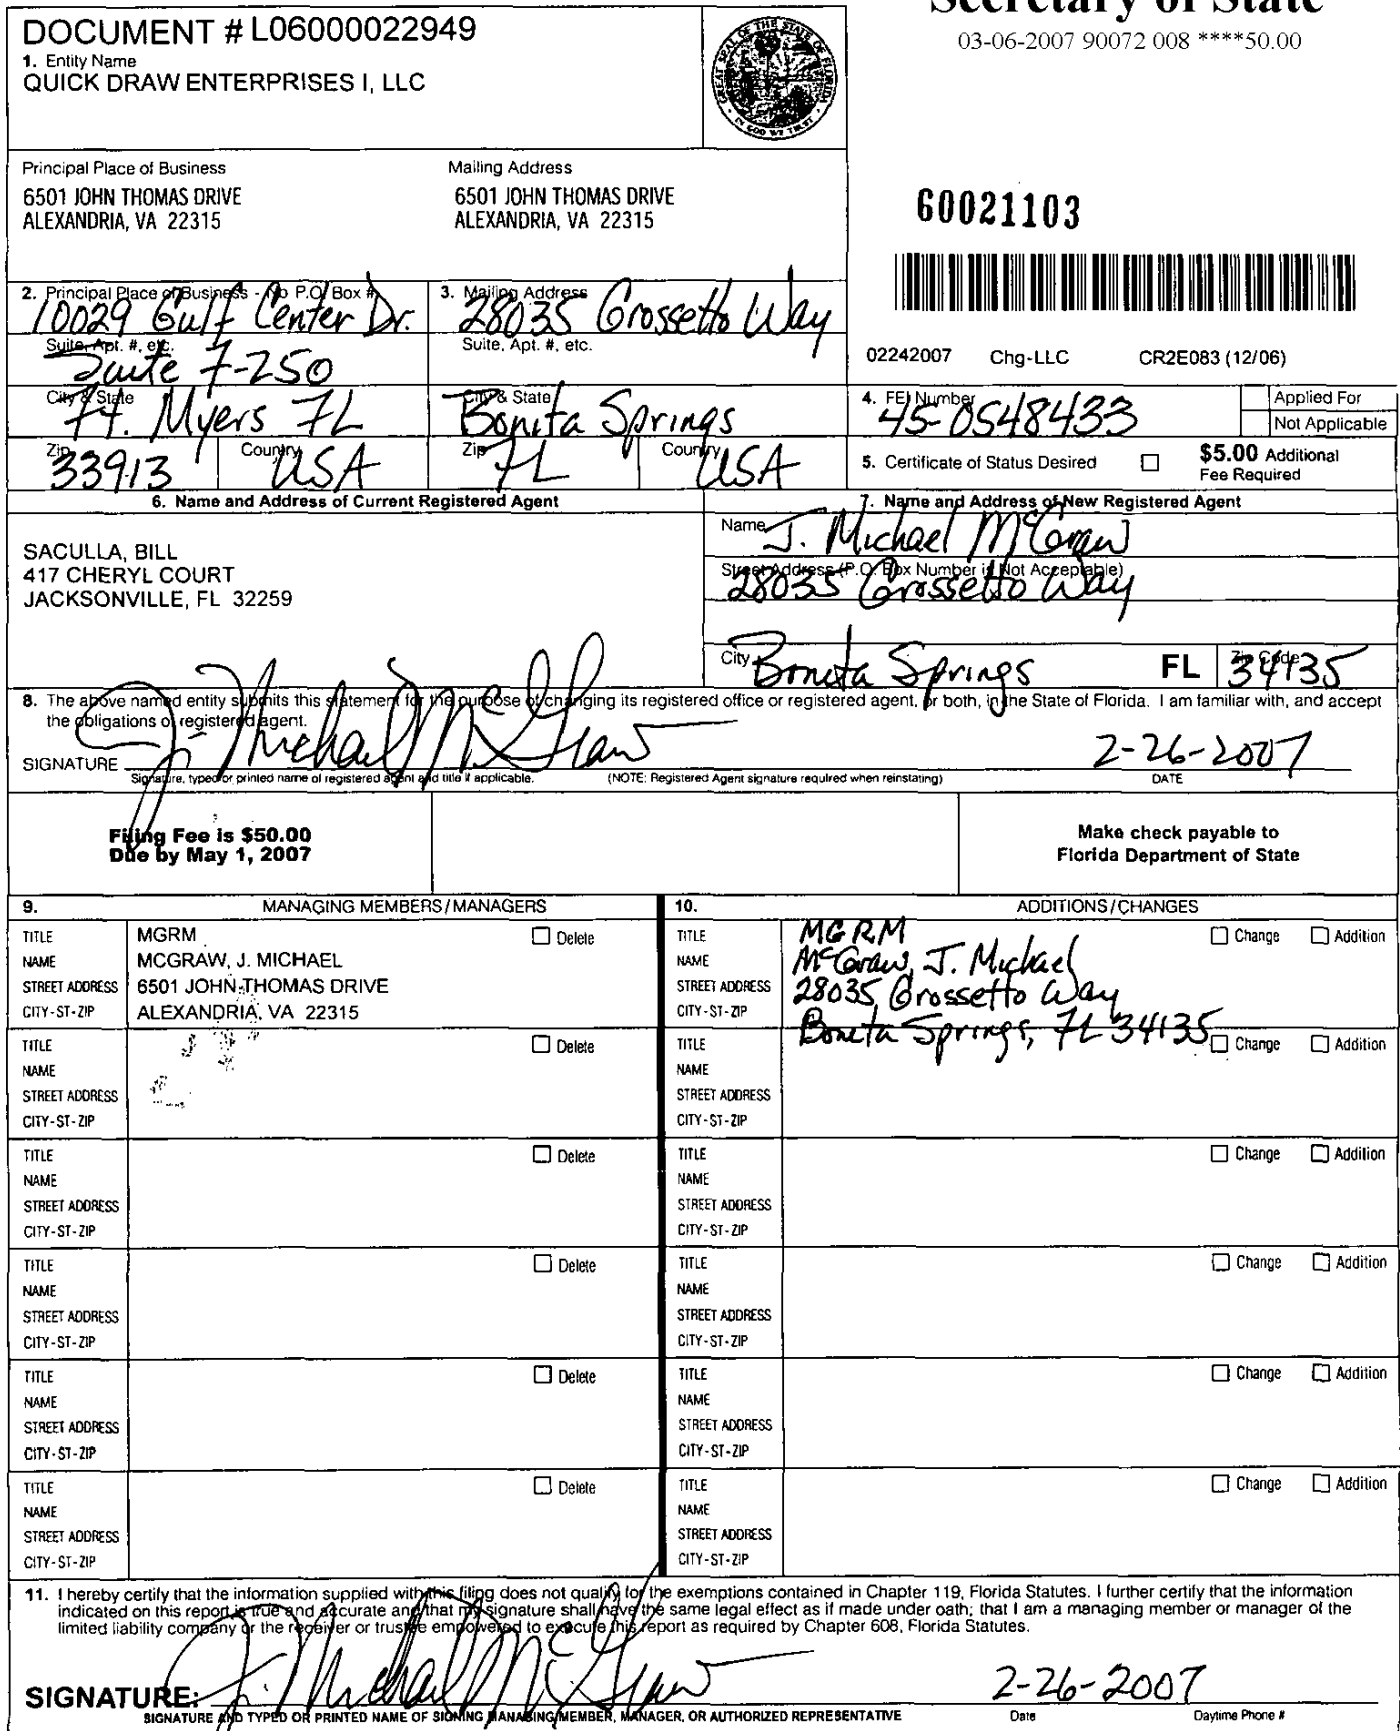 Secretary of State
03-06-2007 90072 008 ****50.00
DOCUMENT # L06000022949
1. Entity Name
QUICK DRAW ENTERPRISES I, LLC
GREAT SEAL OF THE STATE OF FLORIDA
IN GOD WE TRUST
Principal Place of Business
6501 JOHN THOMAS DRIVE
ALEXANDRIA, VA 22315
Mailing Address
6501 JOHN THOMAS DRIVE
ALEXANDRIA, VA 22315
60021103
02242007 Chg-LLC CR2E083 (12/06)
2. Principal Place of Business - No P.O. Box #
10029 Gulf Center Dr.
Suite, Apt. #, etc.
Suite F-250
City & State
Ft. Myers FL
Zip
33913
Country
USA
3. Mailing Address
28035 Grossetto Way
Suite, Apt. #, etc.
City & State
Bonita Springs
Zip
FL
Country
USA
4. FEI Number
45-0548433
Applied For
Not Applicable
5. Certificate of Status Desired
$5.00 Additional
Fee Required
6. Name and Address of Current Registered Agent
SACULLA, BILL
417 CHERYL COURT
JACKSONVILLE, FL 32259
7. Name and Address of New Registered Agent
Name
J. Michael McGraw
Street Address (P.O. Box Number is Not Acceptable)
28035 Grossetto Way
City
Bonita Springs
FL
Zip Code
34135
8. The above named entity submits this statement for the purpose of changing its registered office or registered agent, or both, in the State of Florida. I am familiar with, and accept
the obligations of registered agent.
SIGNATURE J. Michael McGraw
2-26-2007
Signature, typed or printed name of registered agent and title if applicable.
(NOTE: Registered Agent signature required when reinstating)
DATE
Filing Fee is $50.00
Due by May 1, 2007
Make check payable to
Florida Department of State
9. MANAGING MEMBERS/MANAGERS
TITLE MGRM Delete
NAME MCGRAW, J. MICHAEL
STREET ADDRESS 6501 JOHN THOMAS DRIVE
CITY-ST-ZIP ALEXANDRIA, VA 22315
TITLE Delete
NAME
STREET ADDRESS
CITY-ST-ZIP
TITLE Delete
NAME
STREET ADDRESS
CITY-ST-ZIP
TITLE Delete
NAME
STREET ADDRESS
CITY-ST-ZIP
TITLE Delete
NAME
STREET ADDRESS
CITY-ST-ZIP
TITLE Delete
NAME
STREET ADDRESS
CITY-ST-ZIP
10. ADDITIONS/CHANGES
TITLE MGRM Change Addition
NAME McGraw, J. Michael
STREET ADDRESS 28035 Grossetto Way
CITY-ST-ZIP Bonita Springs, FL 34135
TITLE Change Addition
NAME
STREET ADDRESS
CITY-ST-ZIP
TITLE Change Addition
NAME
STREET ADDRESS
CITY-ST-ZIP
TITLE Change Addition
NAME
STREET ADDRESS
CITY-ST-ZIP
TITLE Change Addition
NAME
STREET ADDRESS
CITY-ST-ZIP
TITLE Change Addition
NAME
STREET ADDRESS
CITY-ST-ZIP
11. I hereby certify that the information supplied with this filing does not qualify for the exemptions contained in Chapter 119, Florida Statutes. I further certify that the information
indicated on this report is true and accurate and that my signature shall have the same legal effect as if made under oath; that I am a managing member or manager of the
limited liability company or the receiver or trustee empowered to execute this report as required by Chapter 608, Florida Statutes.
SIGNATURE: J. Michael McGraw
2-26-2007
SIGNATURE AND TYPED OR PRINTED NAME OF SIGNING MANAGING MEMBER, MANAGER, OR AUTHORIZED REPRESENTATIVE
Date
Daytime Phone #